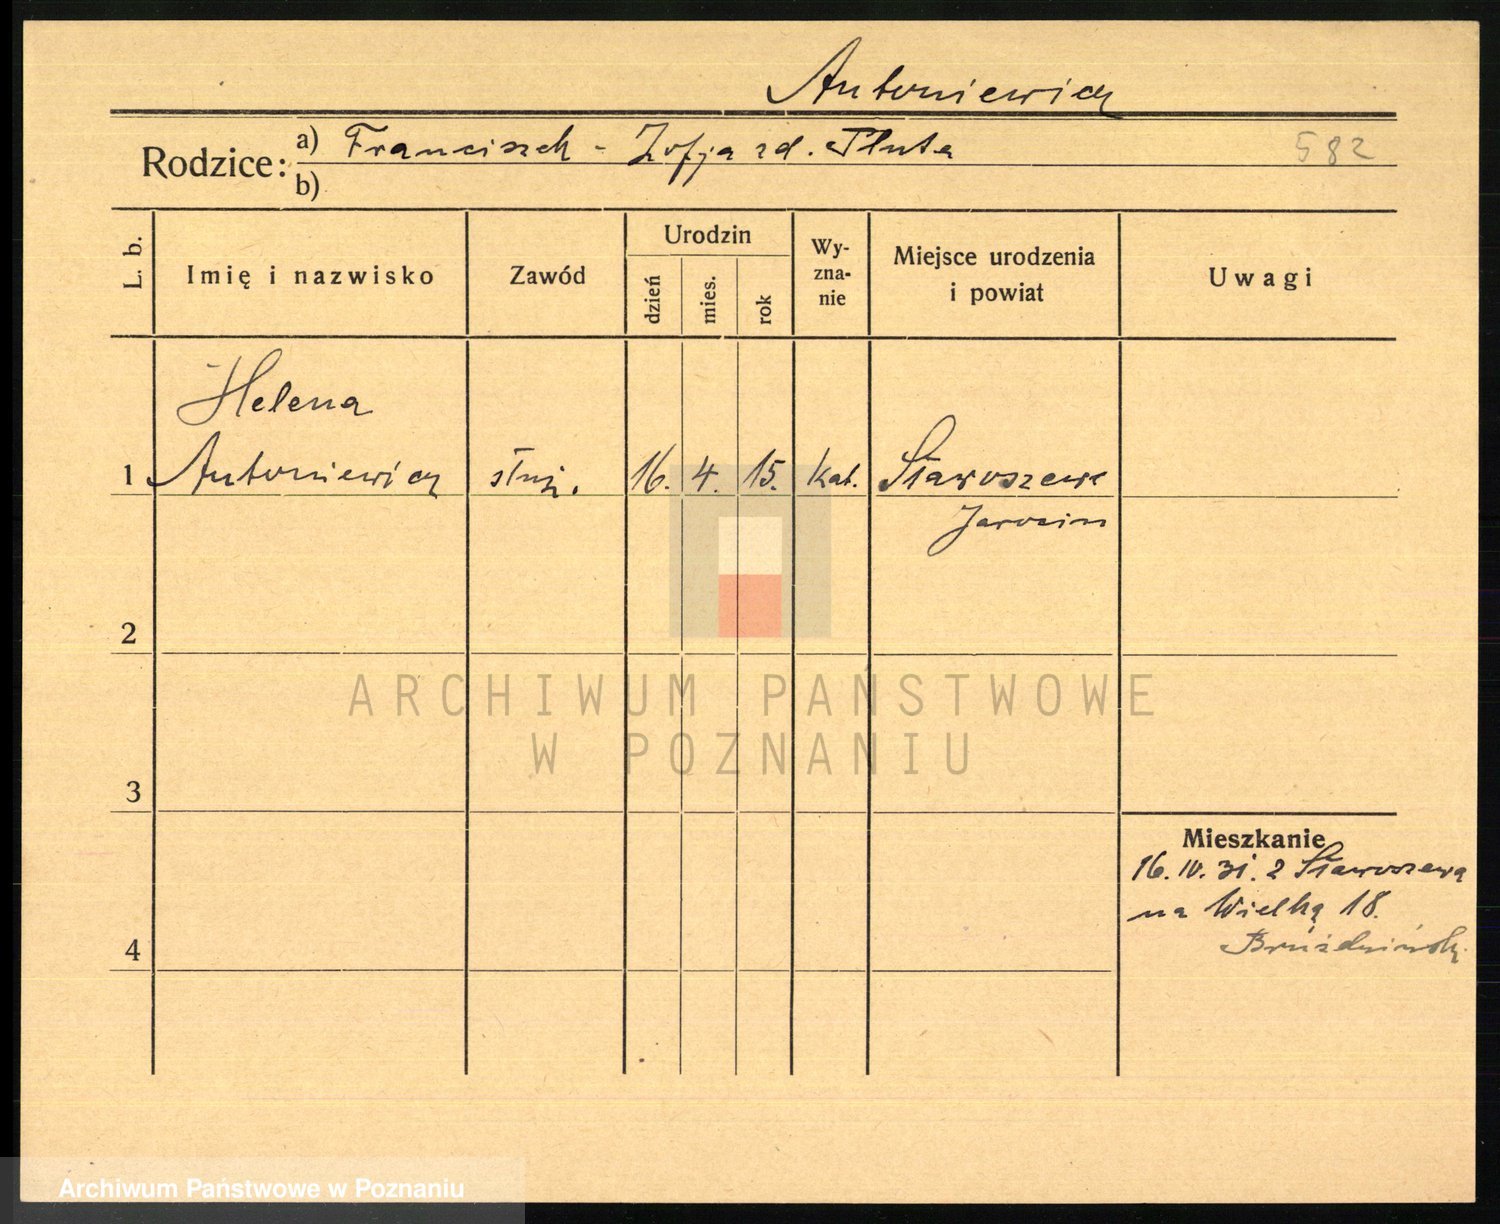 Antoniewicz
Rodzice:
a) Franciszek - Zofja zd. Pluta
582
b)
L. b.
Imię i nazwisko
Zawód
Urodzin
dzień
mies.
rok
Wy-
zna-
nie
Miejsce urodzenia
i powiat
Uwagi
Helena
1 Antoniewicz służ. 16. 4. 15. kat. Sławoszewo
Jarocin
2
3
4
Mieszkanie
16. IV. 31. z Sławoszewa
na Wielką 18.
ARCHIWUM PAŃSTWOWE
W POZNANIU
Archiwum Państwowe w Poznaniu